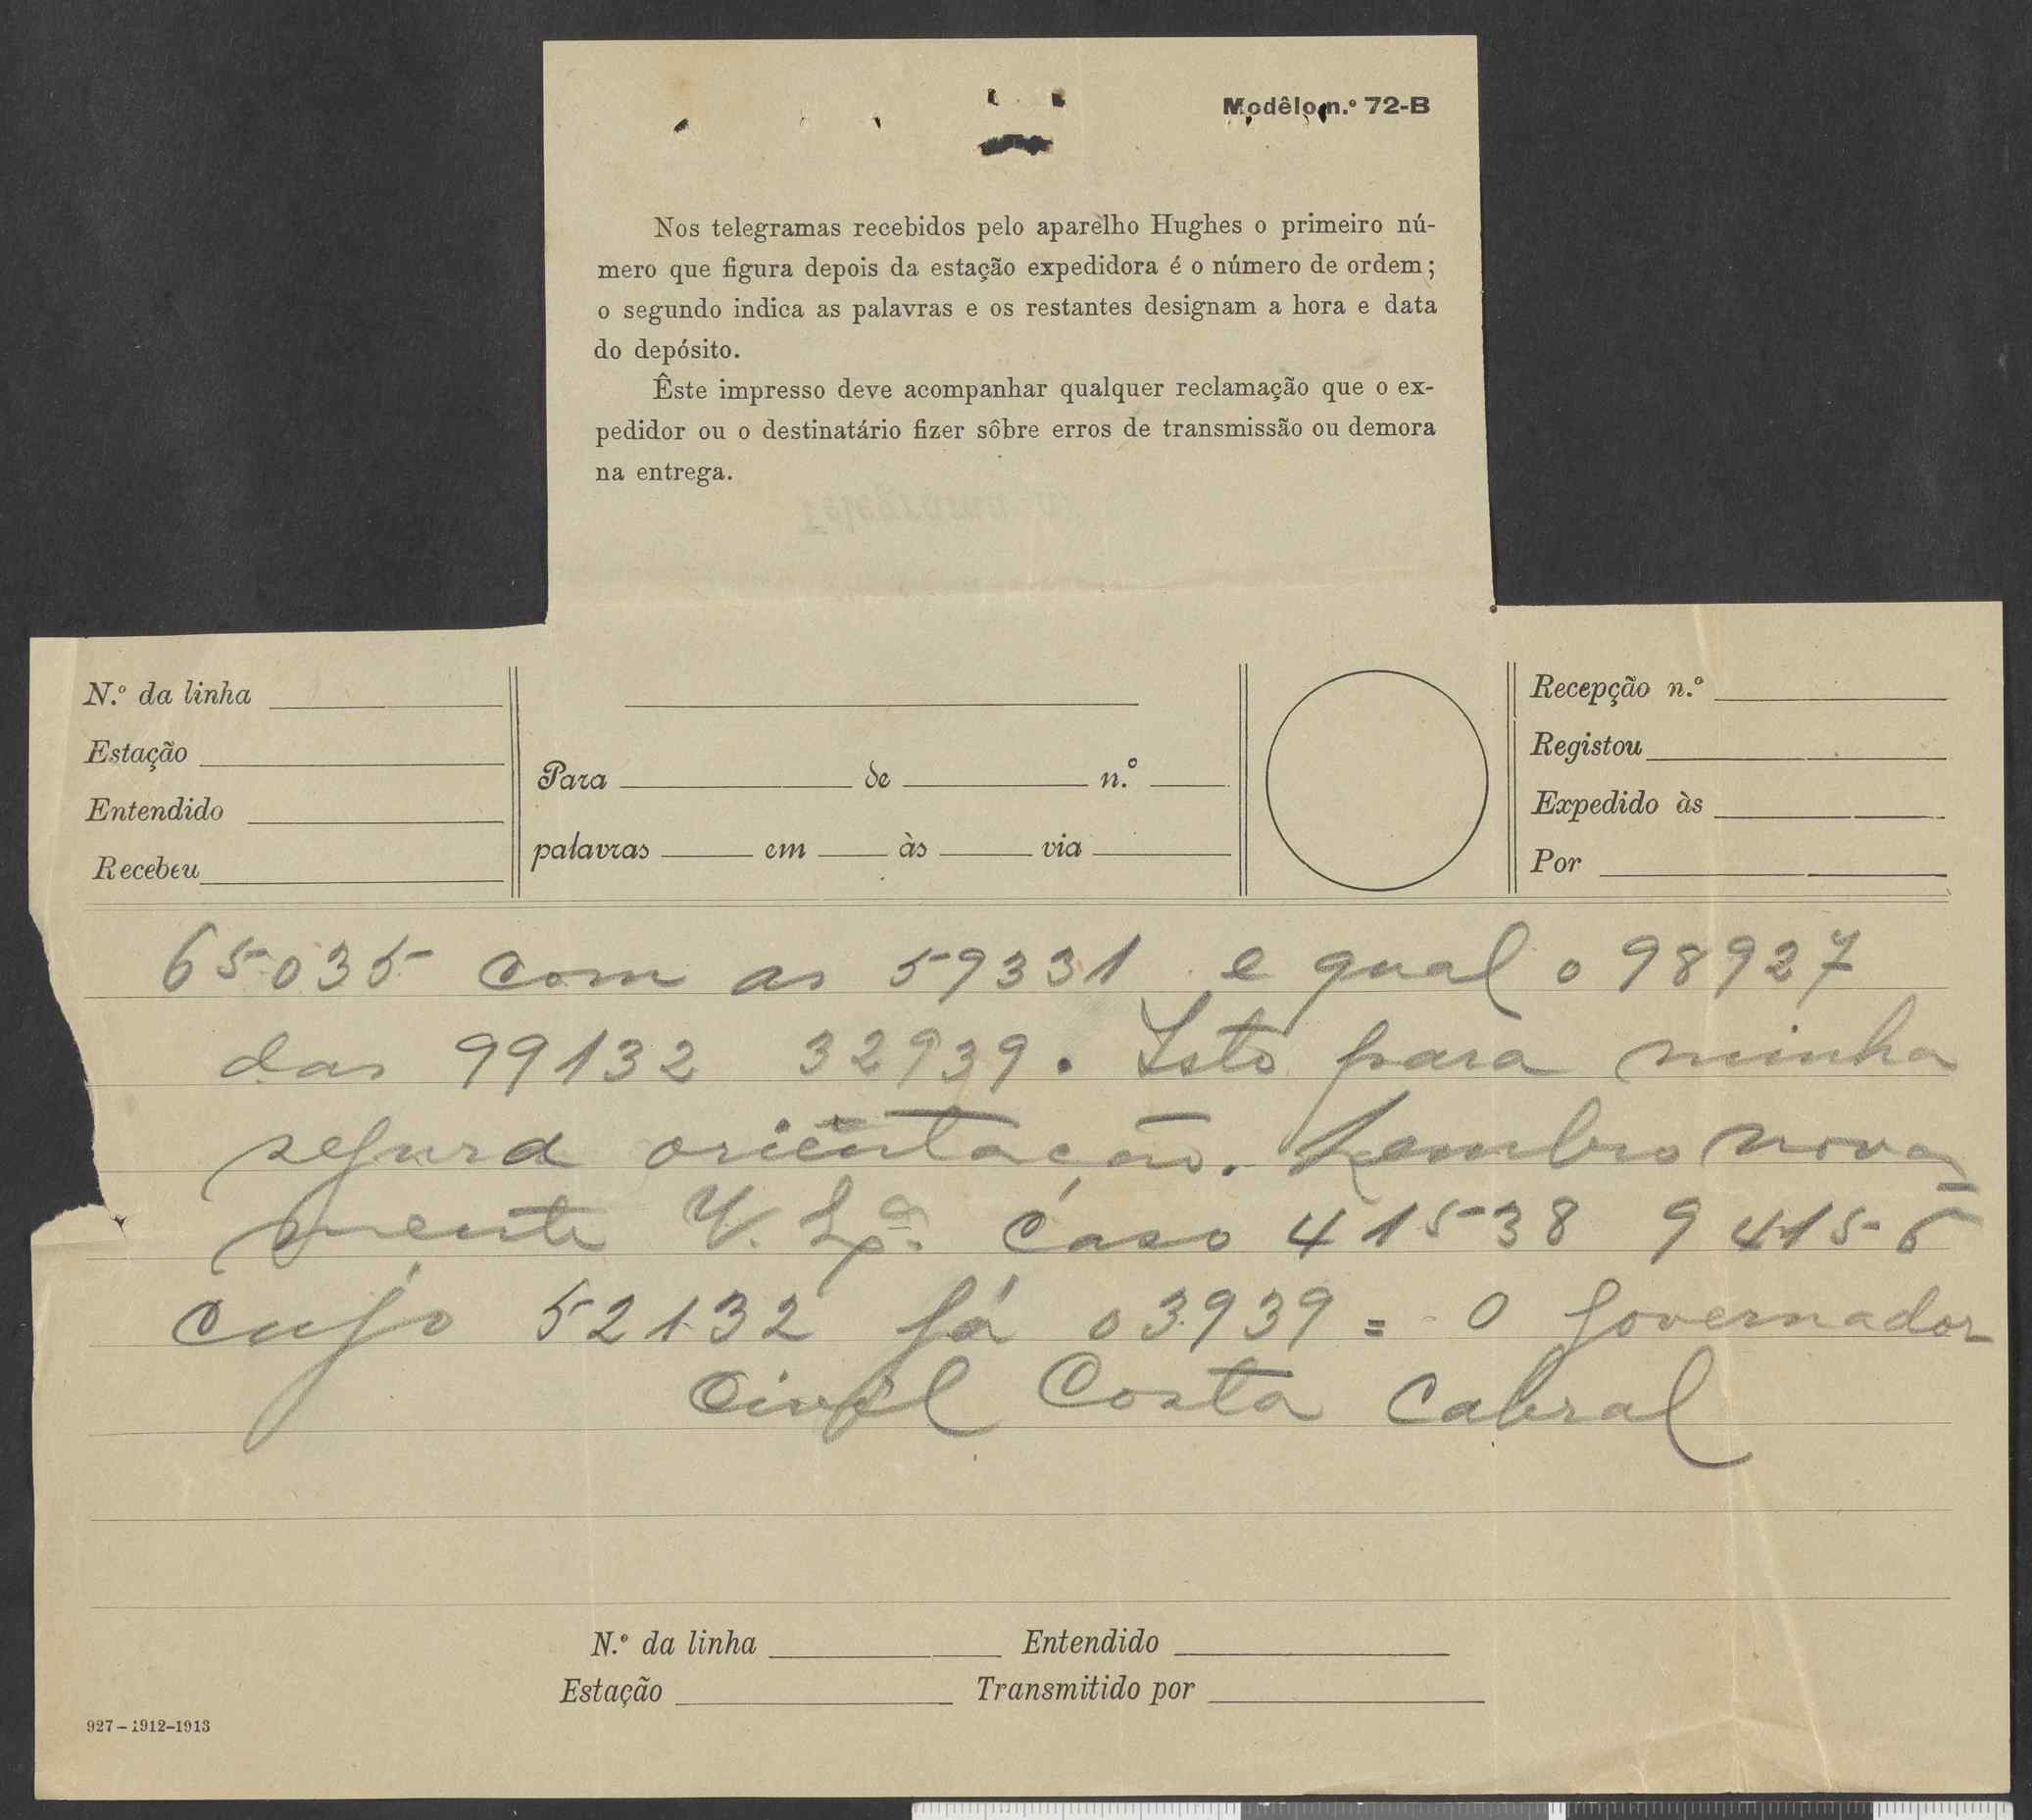 Modêlo n.º 72-B
Nos telegramas recebidos pelo aparelho Hughes o primeiro nú-
mero que figura depois da estação expedidora é o número de ordem;
o segundo indica as palavras e os restantes designam a hora e data
do depósito.
Êste impresso deve acompanhar qualquer reclamação que o ex-
pedidor ou o destinatário fizer sôbre erros de transmissão ou demora
na entrega.
N.º da linha
Estação
Entendido
Recebeu
Para de n.º
palavras em às via
Recepção n.º
Registou
Expedido às
Por
65035 com as 59331 e qual o 98927
das 99132 32939. Isto para minha
segura orientação. Lembro nova
mente V. Exª. caso 41538 9415
cujo 52132 já 03939 = O Governador
Civil Costa Cabral
N.º da linha Entendido
Estação Transmitido por
927-1912-1913